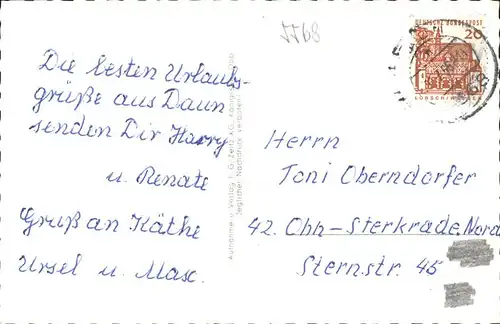 JJ68
DEUTSCHE BUNDESPOST
20
LORSCH/HESSEN
Die besten Urlaubs-
grüße aus Daun
senden Dir Harry
u. Renate
Gruß an Käthe
Ursel u. Max.
Aufnahme u. Verlag
jeglicher Nachdruck verboten
Herrn
Toni Oberndorfer
42. Obh-Sterkrade, Nord
Sternstr. 45